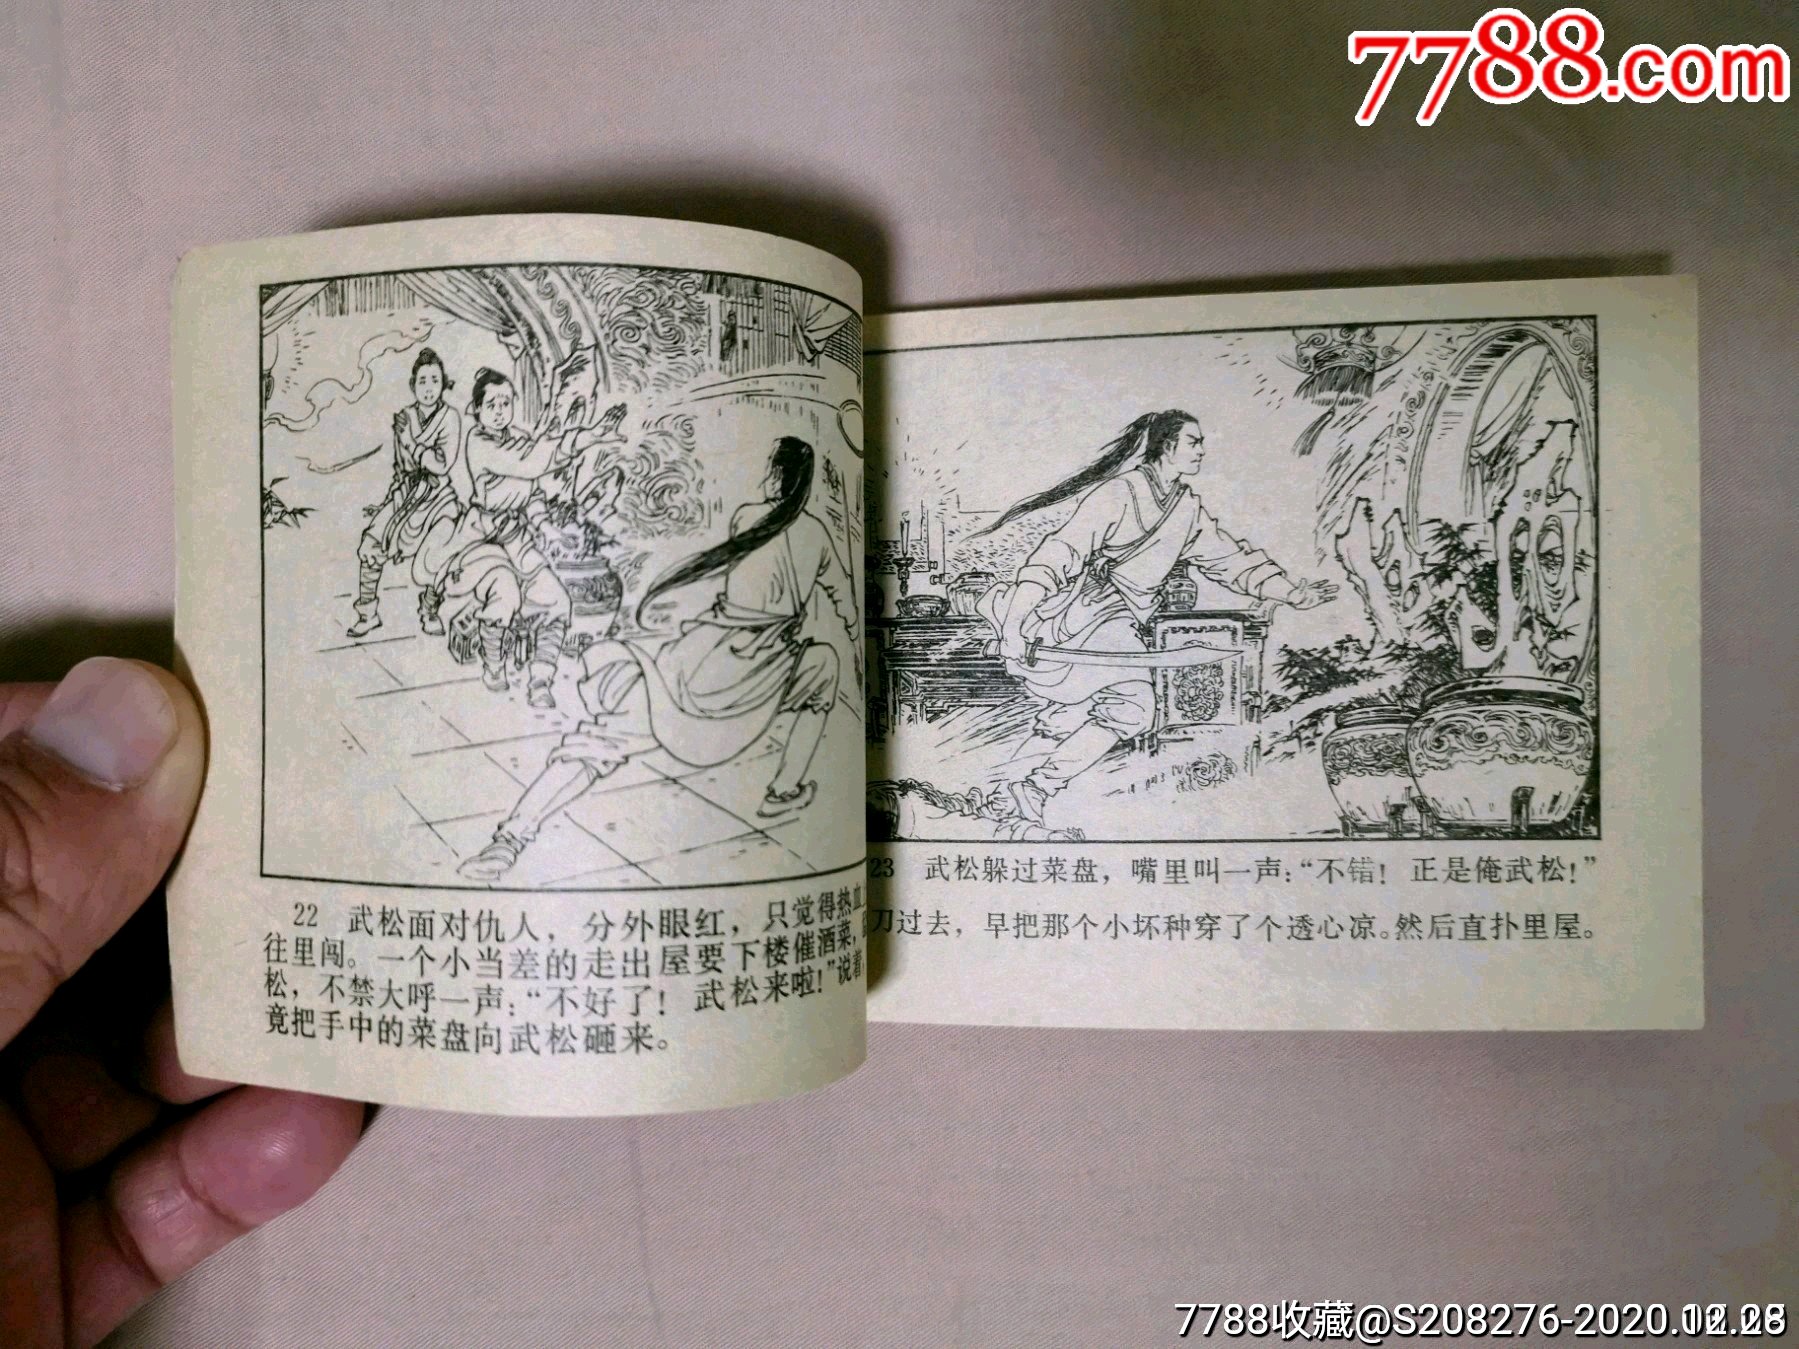 7788.com
22 武松面对仇人，分外眼红，只觉得热血
往里闯。一个小当差的走出屋要下楼催酒菜，
松，不禁大呼一声：“不好了！武松来啦！”说着，
竟把手中的菜盘向武松砸来。
23 武松躲过菜盘，嘴里叫一声：“不错！正是俺武松！”
刀过去，早把那个小坏种穿了个透心凉。然后直扑里屋。
7788收藏@S208276-2020.